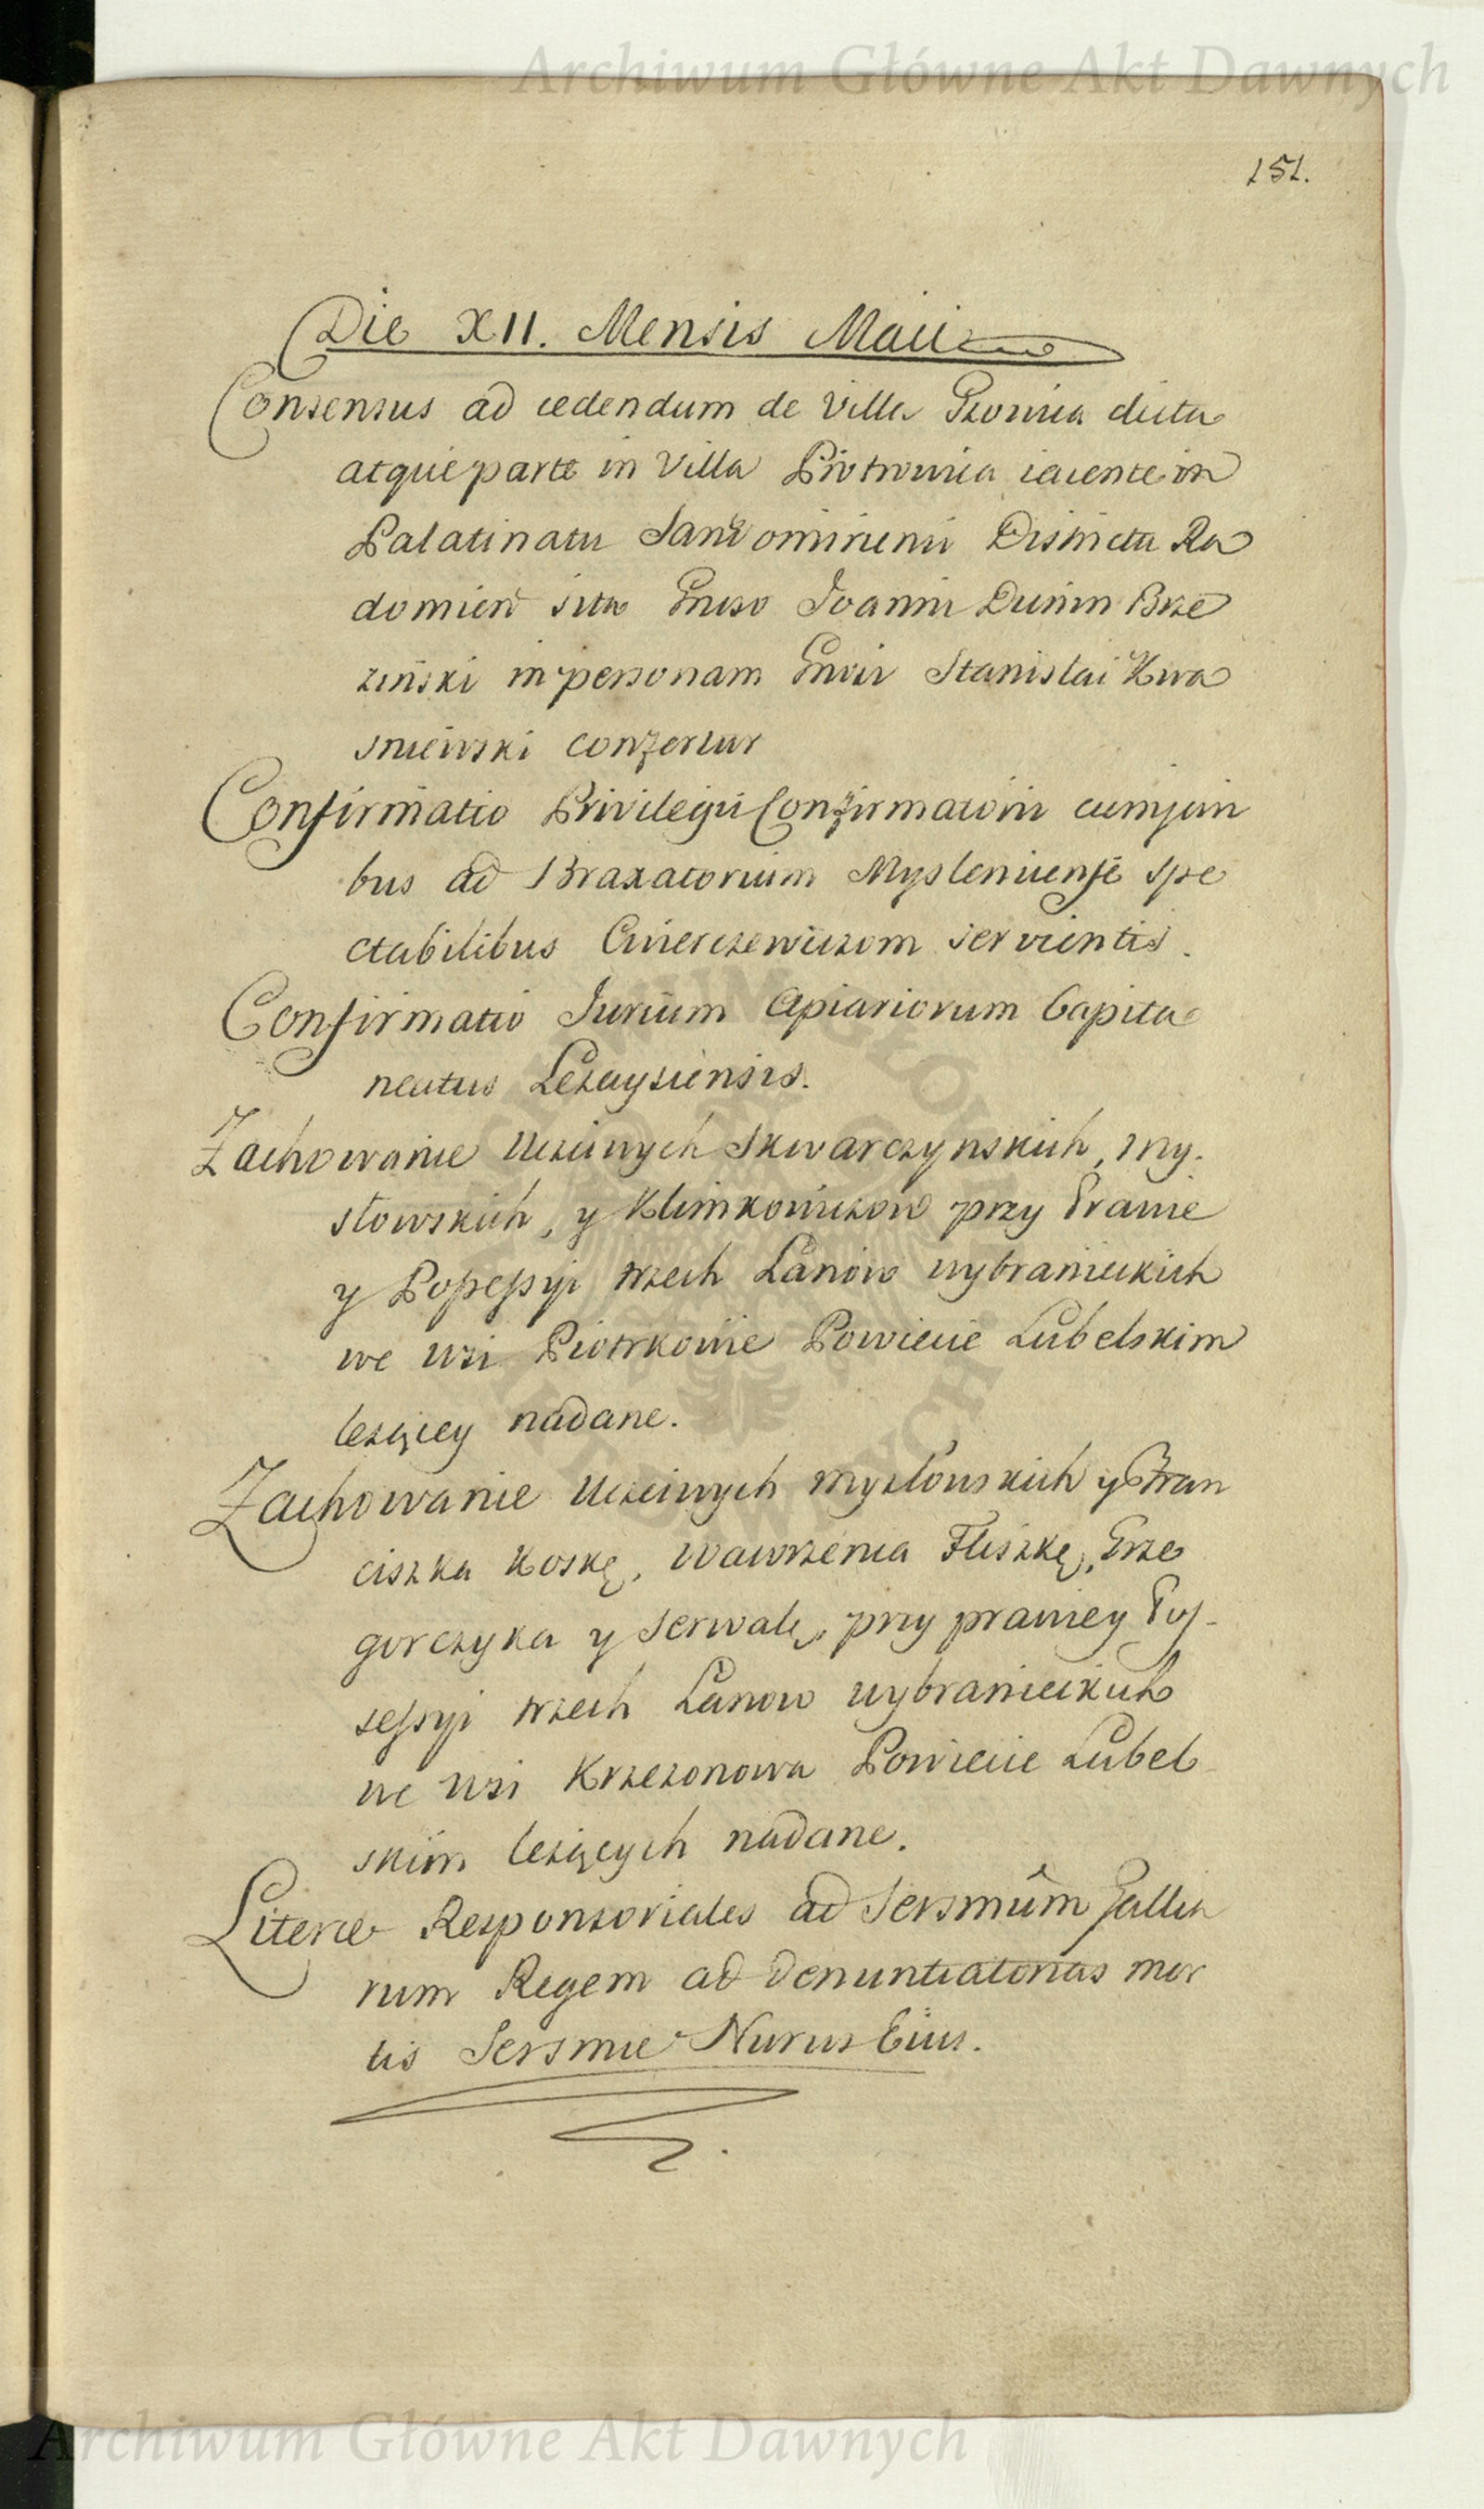 Archiwum Główne Akt Dawnych
151.
Die XII. Mensis Maii
Consensus ad cedendum de Villa dicta
atque parte in Villa Piotrowica iacente in
Palatinatu Sandomiriensi Districtu Ra
domien sita Gnroso Joanni Dunin Brze
ziński in personam Gnrosi Stanislai Kwa
sniewski confertur
Confirmatio Privilegii Confirmationis cum juri
bus ad Braxatorium Mysleniense spe
ctabilibus servientis.
Confirmatio Jurium Apiariorum Capita
neatus Lezaysiensis.
Zachowanie Uczciwych Skwarczynskich, My-
słowskich, y Klimkowiczow przy Prawie
y Possessyi trzech Łanów wybranieckich
we wsi Piotrkowie Powiecie Lubelskim
leżącey nadane.
Zachowanie Uczciwych Mysłowskich y Fran
ciszka Koskę, Wawrzenca Fliszkę, Grze
gorczyka y Serwatę, przy prawney Pos-
sessyi trzech Łanow wybranieckich
we wsi Krzczonowa Powiecie Lubel
skim leżących nadane.
Literæ Responsoriales ad Sersmum Gallia
rum Regem ad Denuntiatorias mor
tis Sersmæ Nurus Eius.
Archiwum Główne Akt Dawnych